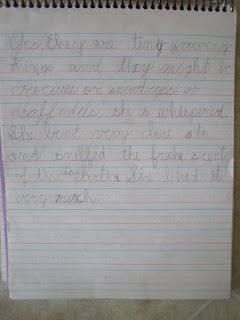 Yes they are tiny growing
things and they might be
crocuses or snowdrops or
daffodils, she whispered.
She bent very close to
and sniffed the fresh scent
of the damp earth. She liked it
very much.